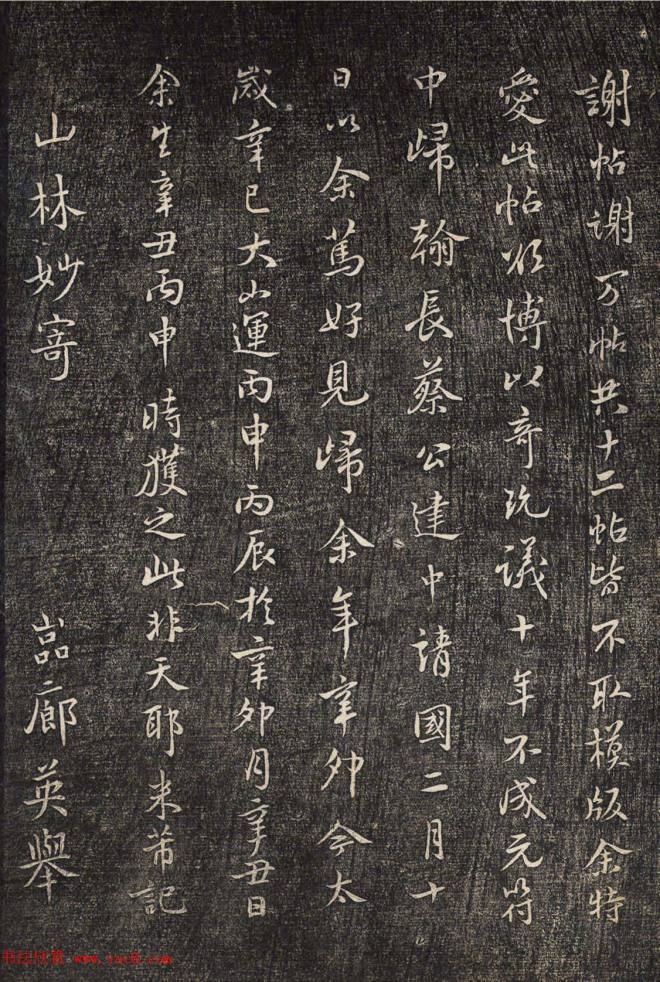 謝帖謝万帖共十二帖皆不取模版余特
愛此帖欲博以奇玩議十年不成元符
中歸翰長蔡公建中靖國二月十
日以余篤好見歸余年辛卯今太
歲辛巳大小運丙申丙辰於辛卯月辛丑日
余生辛丑丙申時獲之此非天耶米芾記
山林妙寄
嵓廊英舉
书法欣赏 www.yac8.com